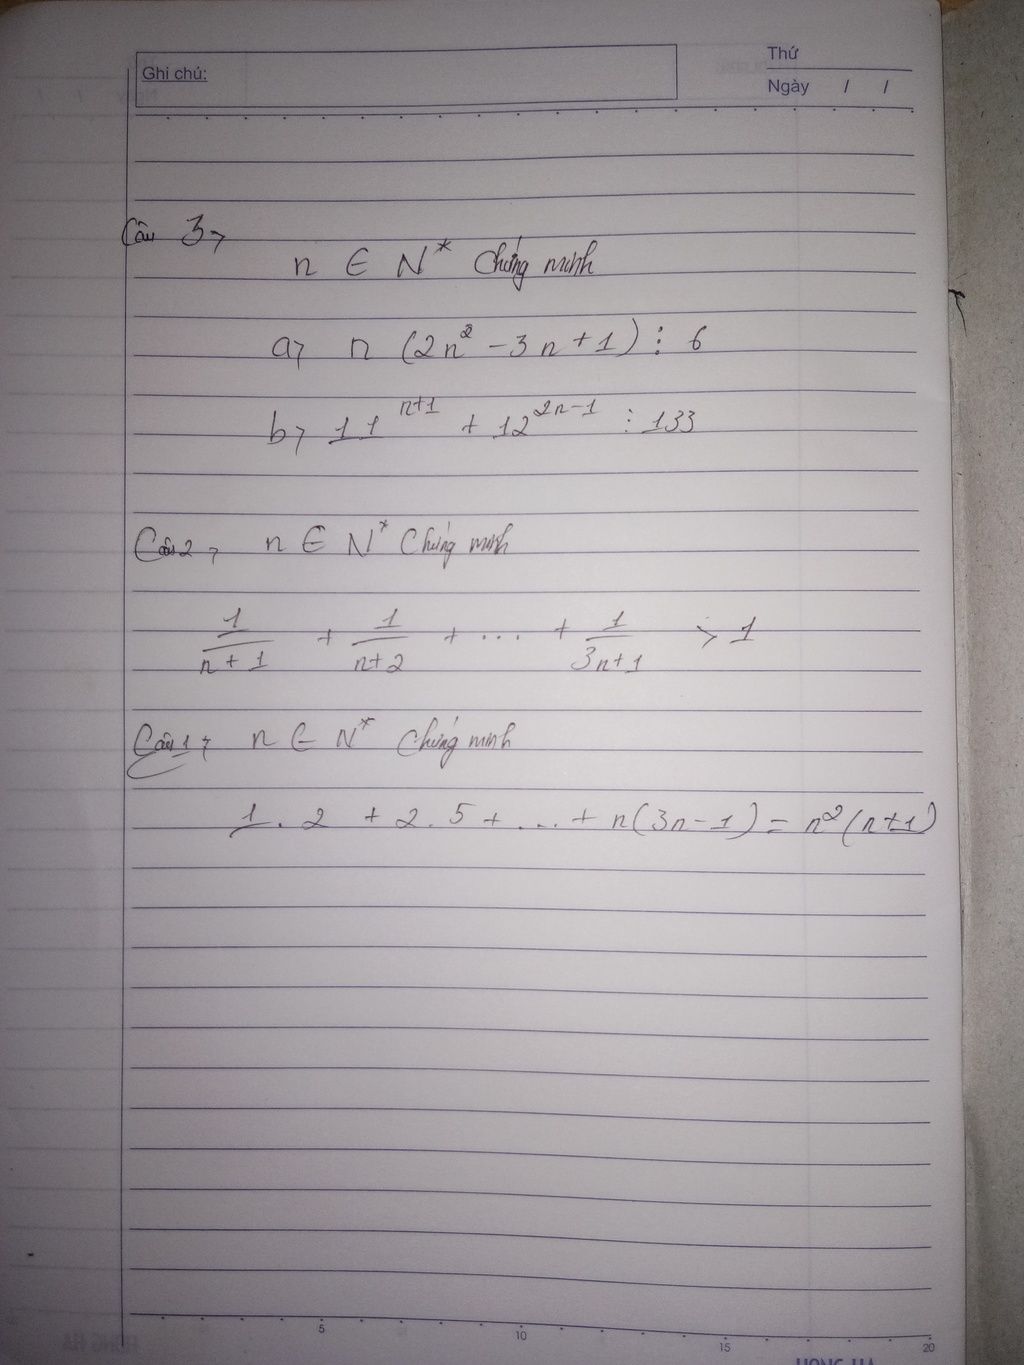 Ghi chú:
Thứ
Ngày / /
Câu 3,
n ∈ N* Chứng minh
a, n (2n² - 3n + 1) ⋮ 6
b, 11ⁿ⁺¹ + 12²ⁿ⁻¹ ⋮ 133
Câu 2, n ∈ N* Chứng minh
1/(n+1) + 1/(n+2) + ... + 1/(3n+1) > 1
Câu 1, n ∈ N* Chứng minh
1.2 + 2.5 + ... + n(3n-1) = n²(n+1)
5 10 15 20
HONG HA